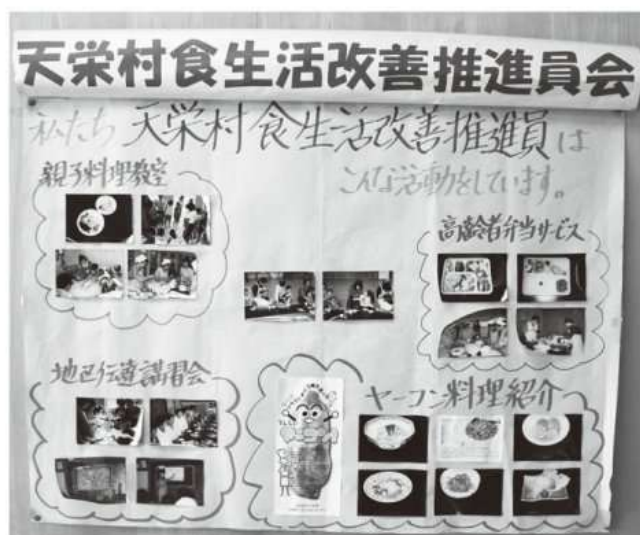 天栄村食生活改善推進員会
私たち 天栄村食生活改善推進員は
こんな活動をしています。
親子料理教室
高齢者弁当サービス
地区伝達講習会
ヤーコン料理紹介